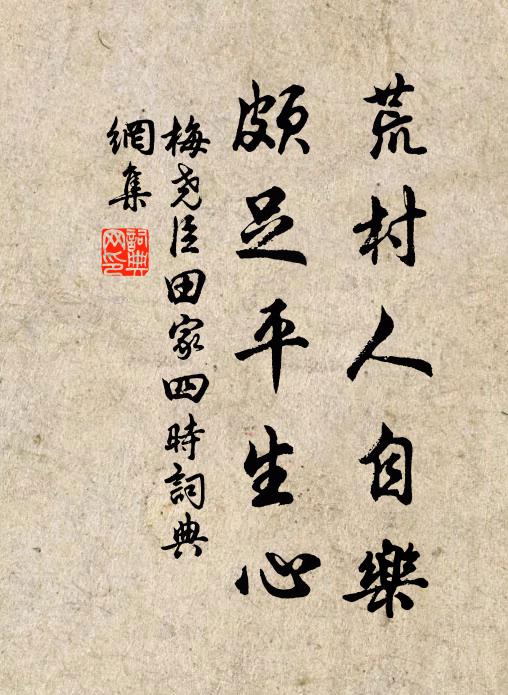 荒村人自樂
頗足平生心
梅堯臣田家四時詞典
網集
詞典
网印